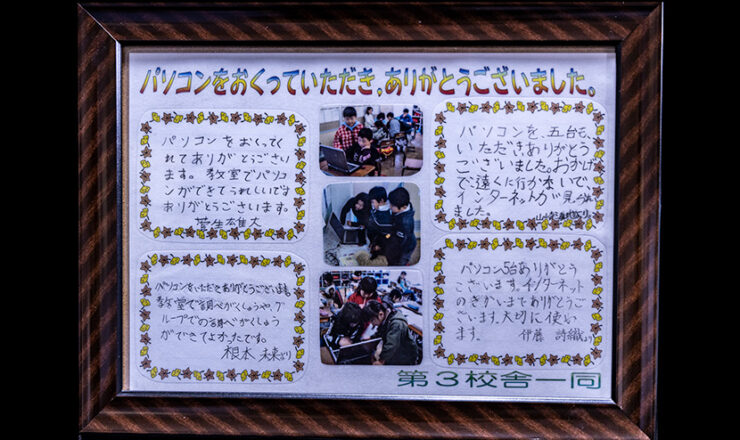 パソコンをおくっていただき,ありがとうございました。
パソコンをおくってく
れてありがとうござい
ます。教室でパソコ
ンができてうれしいです
ありがとうございます。
菅生雄大
パソコンを、五台も、
いただきありがとう
ございました。おかげ
で、遠くに行かないで、
インターネットが見られ
ました。
パソコンをいただきありがとうございます
教室で調べがくしゅうや、グ
ループでの調べがくしゅう
ができてよかったです。
根本 未来より
パソコン5台ありがとう
ございます。インターネット
のきかいまでありがとうご
ざいます。大切に使い
ます。 伊藤 詩織より
第3校舎一同